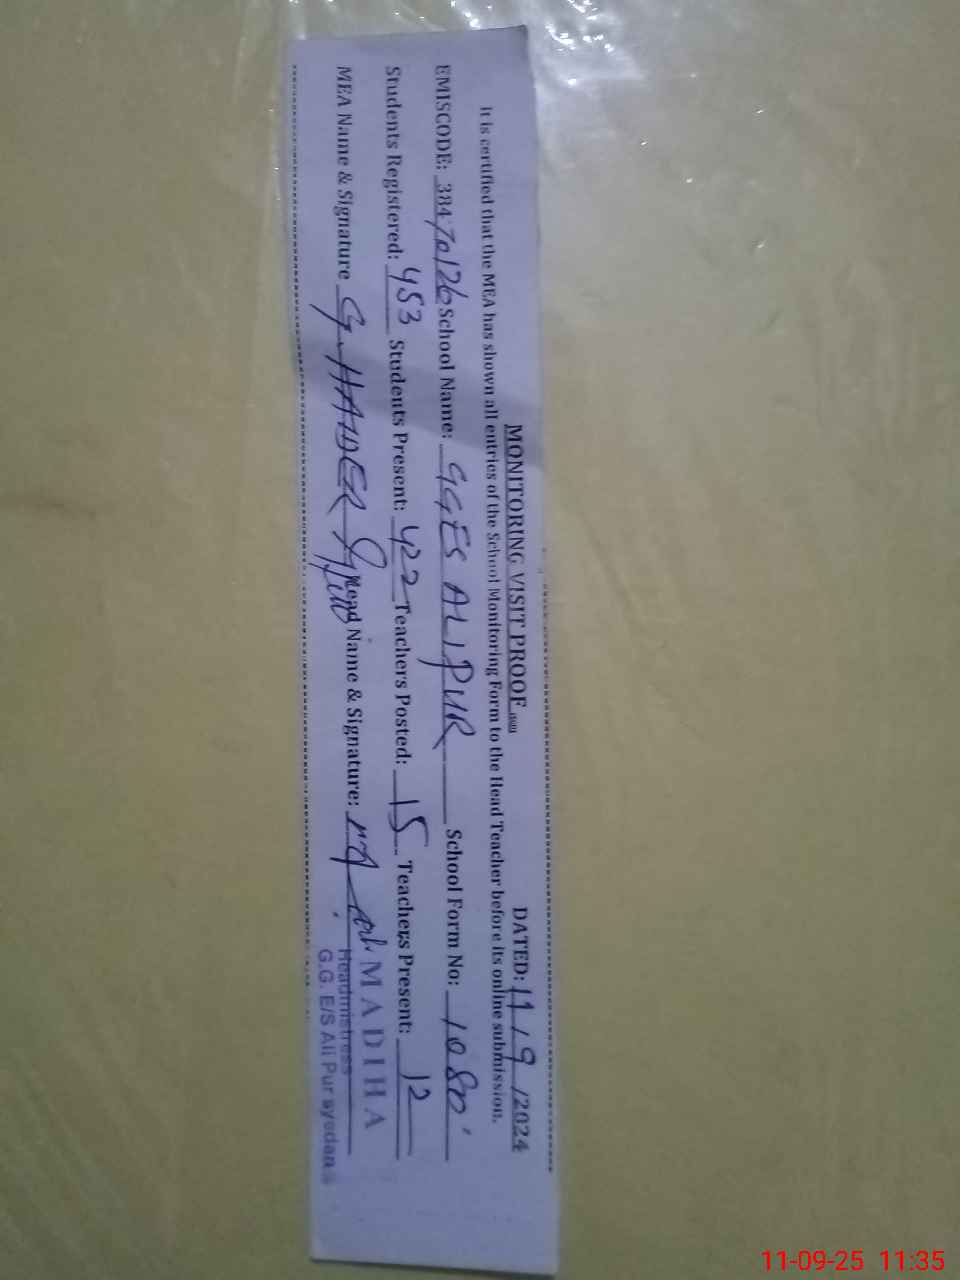 MONITORING VISIT PROOF DATED: 11/9/2024
It is certified that the MEA has shown all entries of the School Monitoring Form to the Head Teacher before its online submission.
EMISCODE: 38470126 School Name: GGES ALIPUR School Form No: 1080
Students Registered: 453 Students Present: 422 Teachers Posted: 15 Teachers Present: 12
MEA Name & Signature G. HAIDER Head Name & Signature: MADIHA
Headmistress
G.G. E/S Ali Pur syedan
11-09-25 11:35